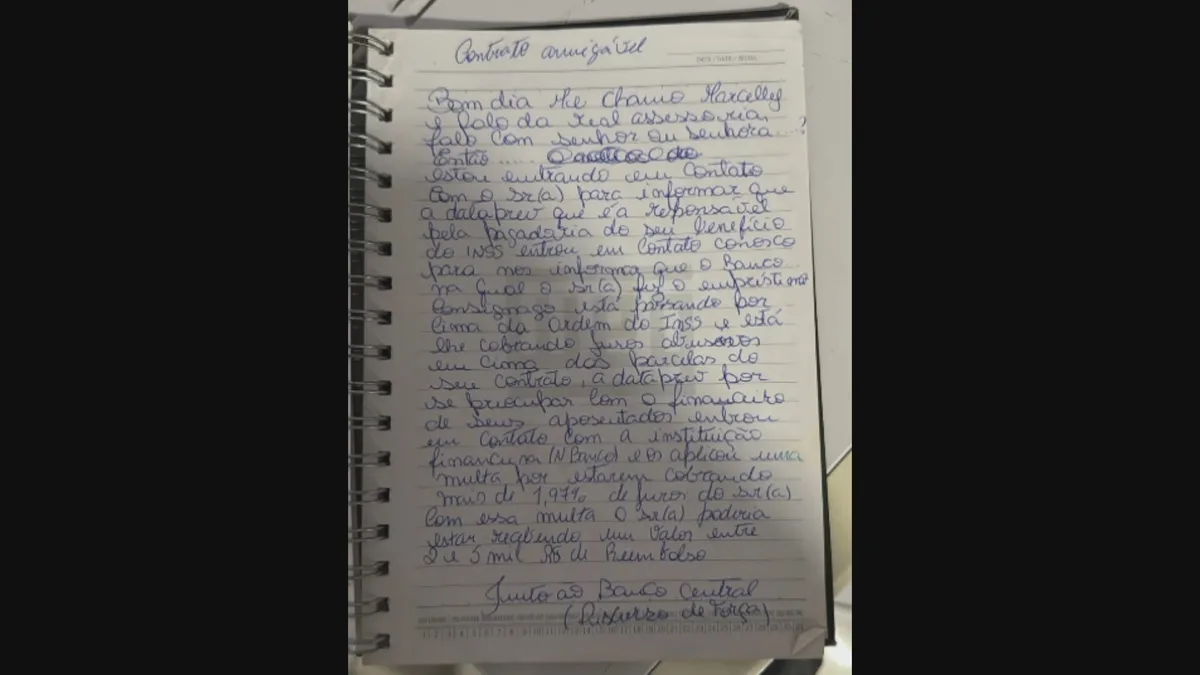 Contrato amigável
Bom dia Me chamo Marcelly
e falo da real assessoria,
falo com senhor ou senhora....?
Então .....
estou entrando em contato
com o sr(a) para informar que
a dataprev que é a responsável
pela pagadoria do seu benefício
do INSS entrou em contato conosco
para nos informar que o Banco...
na qual o sr(a) fez o empréstimo
Consignago está passando por
cima da ordem do INSS e está
lhe cobrando juros abusivos
em cima das parcelas do
seu contrato, a dataprev por
se preocupar com o financeiro
de seus aposentados entrou
em contato com a instituição
financeira (N Banco) e os aplicou uma
multa por estarem cobrando
mais de 1,97% de juros do sr(a)
Com essa multa o sr(a) poderia
estar recebendo um valor entre
2 e 5 mil R$ de Reembolso
Junto ao Banco Central
(Discurzo de Força)